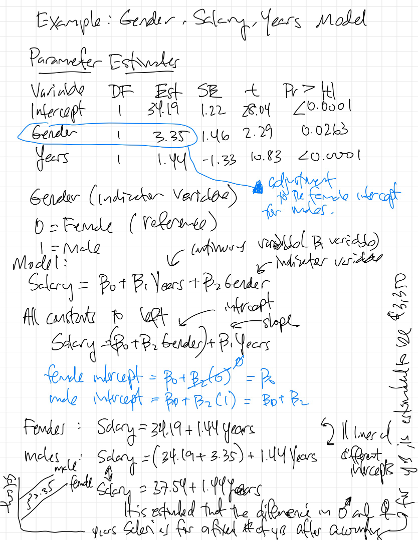 Example: Gender, Salary, Years Model
Parameter Estimates
Variable DF Est SE t Pr > |t|
Intercept 1 34.19 1.22 28.04 <0.0001
Gender 1 3.35 1.46 2.29 0.0263
Years 1 1.44 -1.33 10.83 <0.0001
adjustment
to the female intercept
for males.
Gender (Indicator Variable)
0 = Female (reference)
1 = Male
continuous variable
Model:
indicator variable
Salary = B0 + B1 Years + B2 Gender
All constants to left
intercept
slope
Salary = (B0 + B2 Gender) + B1 Years
female intercept = B0 + B2(0) = B0
male intercept = B0 + B2(1) = B0 + B2
Females: Salary = 34.19 + 1.44 years
Males: Salary = (34.19 + 3.35) + 1.44 Years
2 lines
different
intercepts
Salary = 37.54 + 1.44 years
male
female
$3.35
It is estimated that the difference in ♂ and ♀
salaries for a fixed # of yrs after accounting
for yrs is estimated to be $3,350